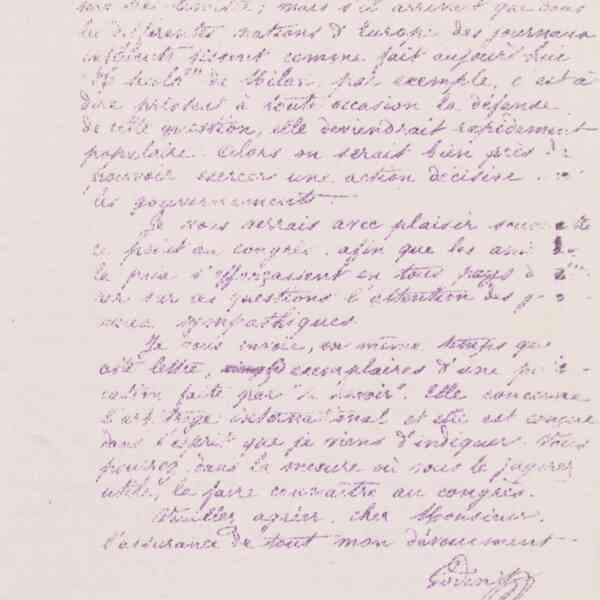 mais s'il arrivait que dans
les différentes nations d'Europe des journaux
fissent comme fait aujourd'hui
"Il Secolo" de Milan, par exemple, c'est à
dire prissent à toute occasion la défense
de cette question, elle deviendrait rapidement
populaire. Alors on serait bien près de
pouvoir exercer une action décisive
les gouvernements
Je vous verrais avec plaisir
ce point au congrès, afin que les amis de
la paix s'efforçassent en tous pays
sur ces questions l'attention des
sympathiques
Je vous envoie, en même temps que
cette lettre, exemplaires d'une
faite par "le Devoir". Elle concerne
l'arbitrage international et elle est conçue
dans l'esprit que je viens d'indiquer. Vous
pourrez, dans la mesure où vous le jugerez
utile, le faire connaître au congrès.
Veuillez agréer, cher Monsieur,
l'assurance de tout mon dévouement
Godin